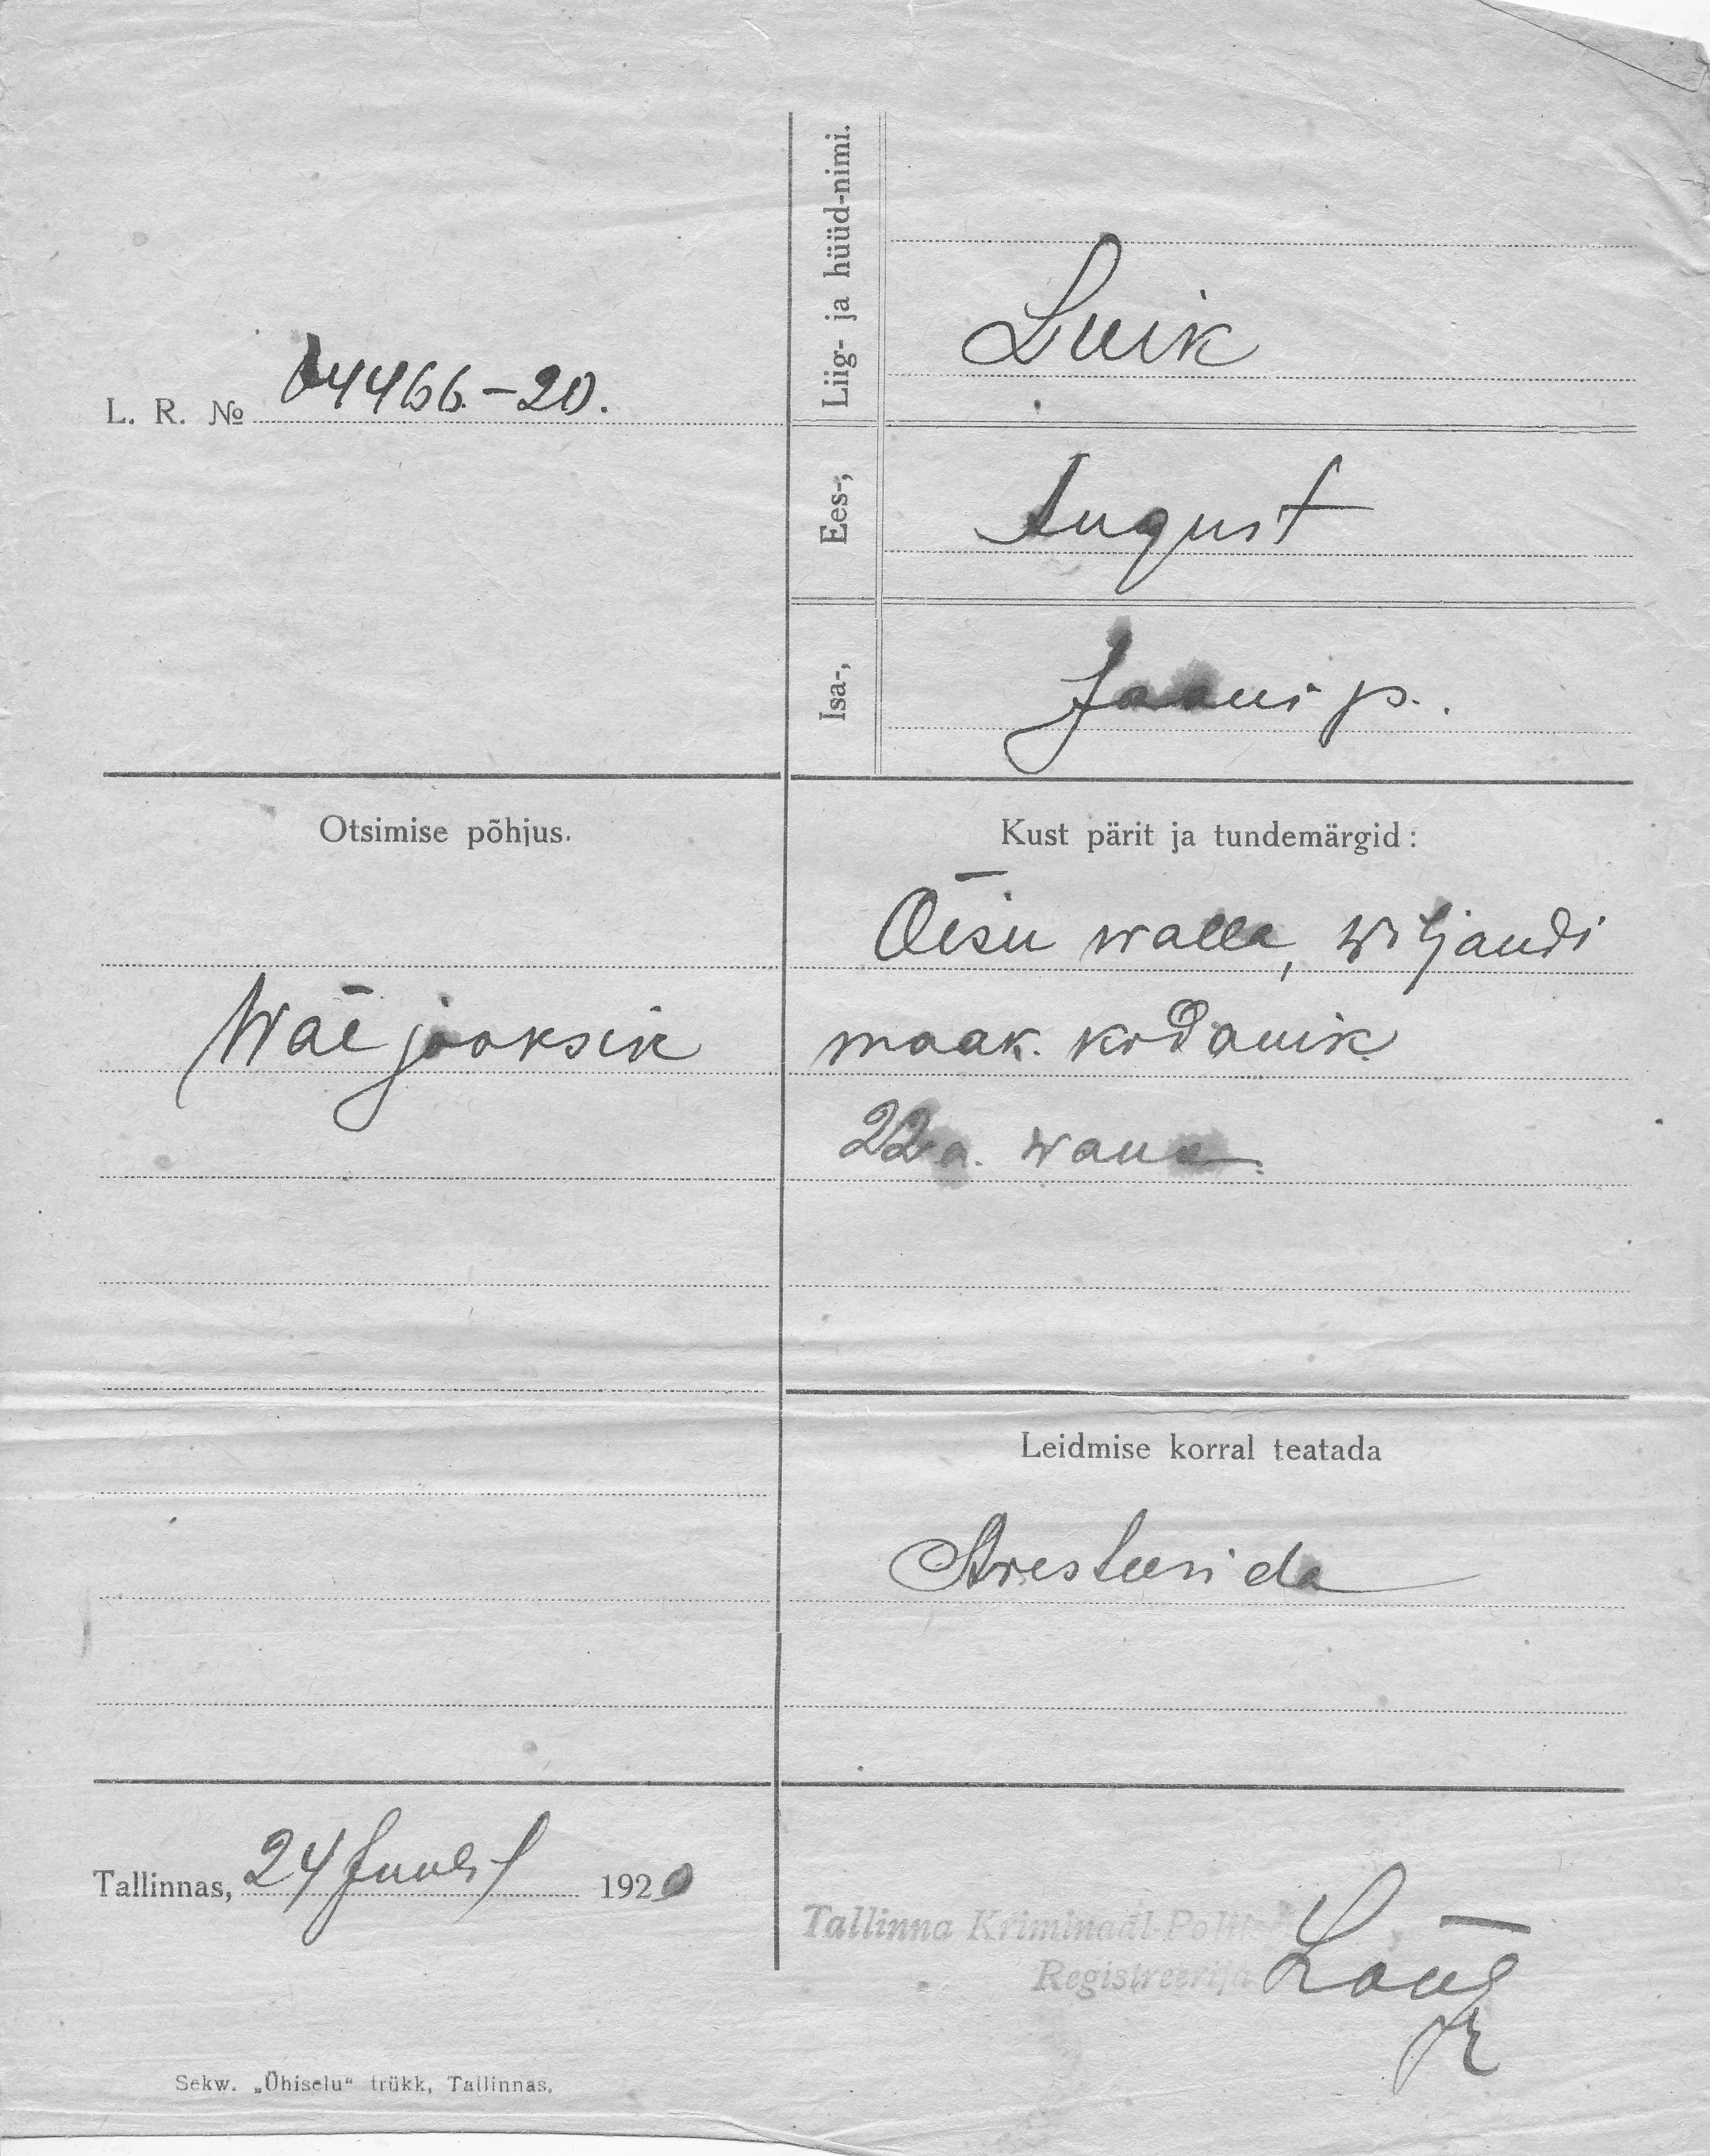 Liig- ja hüüd-nimi.
Luik
L. R. № 64466.-20.
Ees-,
August
Isa-,
Jaani p.
Otsimise põhjus.
Wäejooksik
Kust pärit ja tundemärgid:
Õisu walla, Wiljandi
maak. kodanik
22 a. wana.
Leidmise korral teatada
Aresteerida
Tallinnas, 24 Juulil 1920
Tallinna Kriminaal-Politsei
Registreerija
Sekw. „Ühiselu“ trükk, Tallinnas.